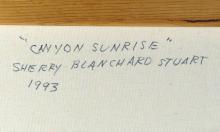 "CANYON SUNRISE"
SHERRY BLANCHARD STUART
1993